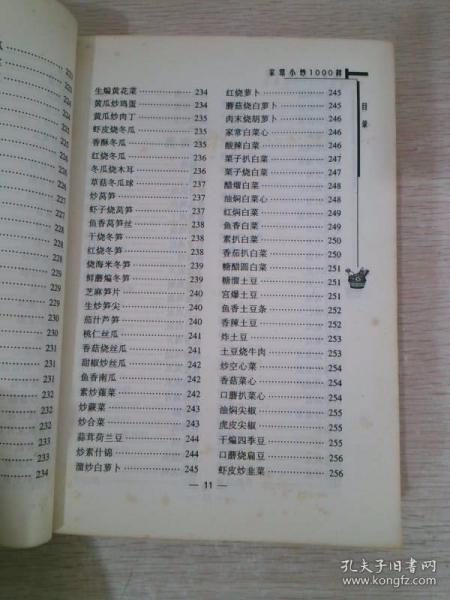 家常小炒1000样
目录
生煸黄花菜……234
黄瓜炒鸡蛋……234
黄瓜炒肉丁……234
虾皮烧冬瓜……235
香酥冬瓜……235
红烧冬瓜……236
冬瓜烧木耳……236
草菇冬瓜球……236
炒莴笋……237
虾子烧莴笋……237
鱼香莴笋丝……238
干烧冬笋……238
红烧冬笋……238
烧海米冬笋……239
鲜蘑煸冬笋……239
芝麻笋片……239
生炒笋尖……240
茄汁芦笋……240
桃仁丝瓜……241
香菇烧丝瓜……241
甜椒炒丝瓜……242
鱼香南瓜……242
素炒蕹菜……243
炒蕨菜……243
炒合菜……243
蒜茸荷兰豆……244
炒素什锦……244
溜炒白萝卜……245
红烧萝卜……245
蘑菇烧白萝卜……245
肉末烧胡萝卜……245
家常白菜心……246
酸辣白菜……246
栗子扒白菜……247
栗子烧白菜……247
醋熘白菜……248
油焖白菜心……248
红焖白菜……249
鱼香白菜……249
素扒白菜……250
香茄扒白菜……250
糖醋圆白菜……251
糖熘土豆……251
宫爆土豆……251
鱼香土豆条……252
香辣土豆……252
炸土豆……253
土豆烧牛肉……253
炒空心菜……254
香菇菜心……254
口蘑扒菜心……254
油焖尖椒……255
虎皮尖椒……255
干煸四季豆……256
口蘑烧扁豆……256
虾皮炒韭菜……256
— 11 —
孔夫子旧书网
www.kongfz.com